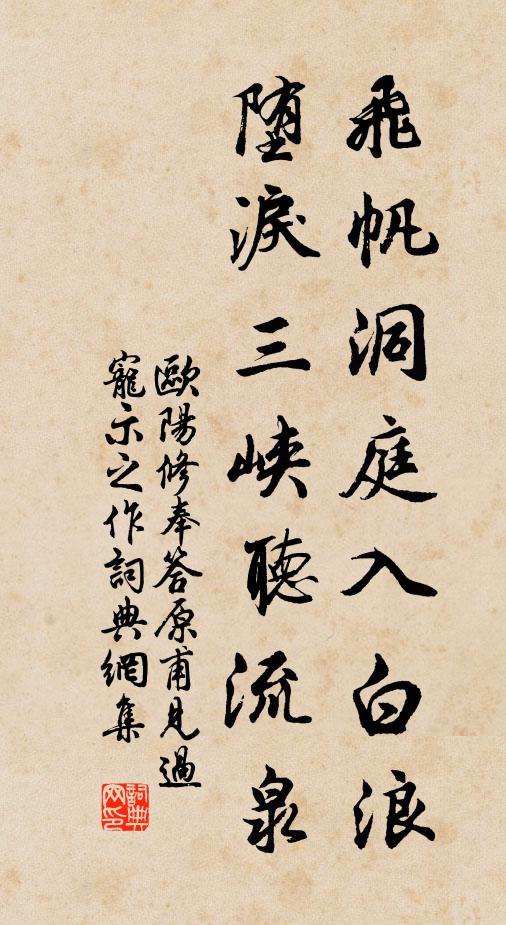 飛帆洞庭入白浪
墮淚三峽聽流泉
歐陽修奉答原甫見過
寵示之作詞典網集
詞典
网印